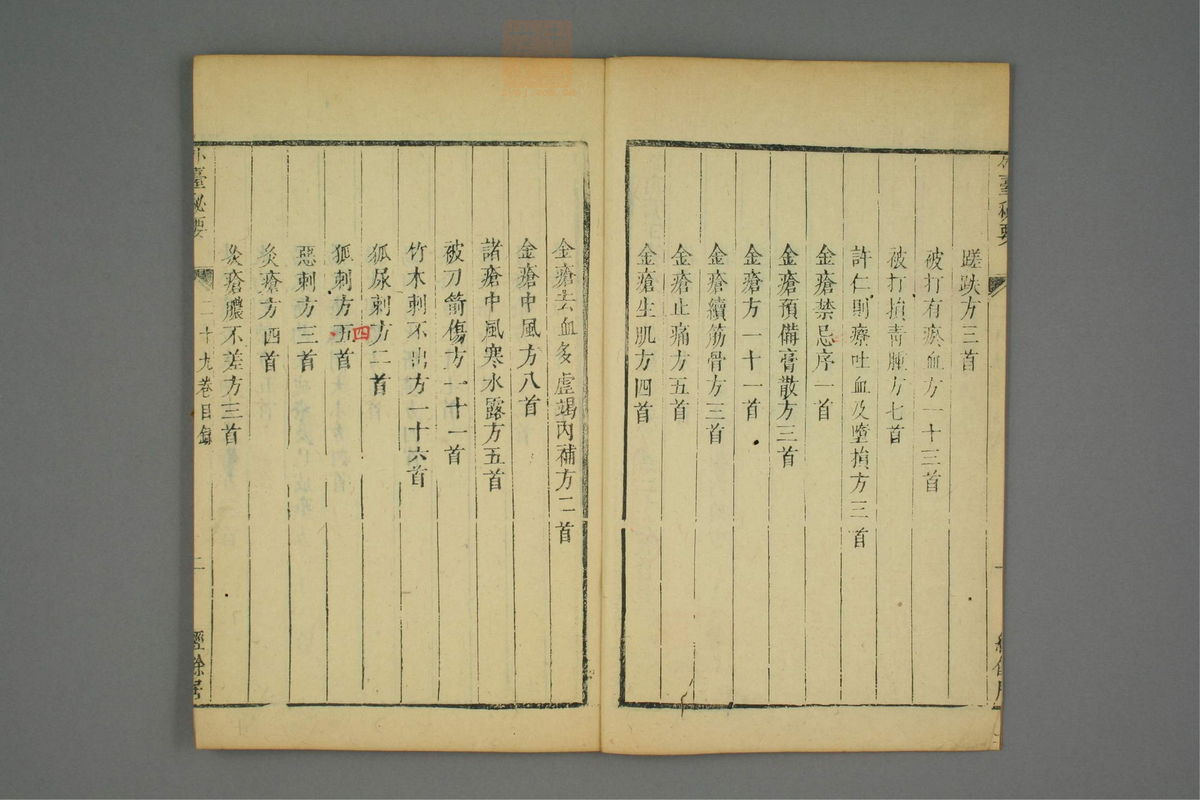 蹉跌方三首
被打有瘀血方一十三首
被打損青腫方七首
許仁則療吐血及墮損方三首
金瘡禁忌序一首
金瘡預備膏散方三首
金瘡方一十一首
金瘡續筋骨方三首
金瘡止痛方五首
金瘡生肌方四首
金瘡去血多虛竭內補方二首
金瘡中風方八首
諸瘡中風寒水露方五首
被刀箭傷方一十一首
竹木刺不出方一十六首
狐尿刺方二首
狐刺方五首
四
惡刺方三首
灸瘡方四首
灸瘡膿不差方三首
外臺秘要
二十九卷目録
二
經餘居